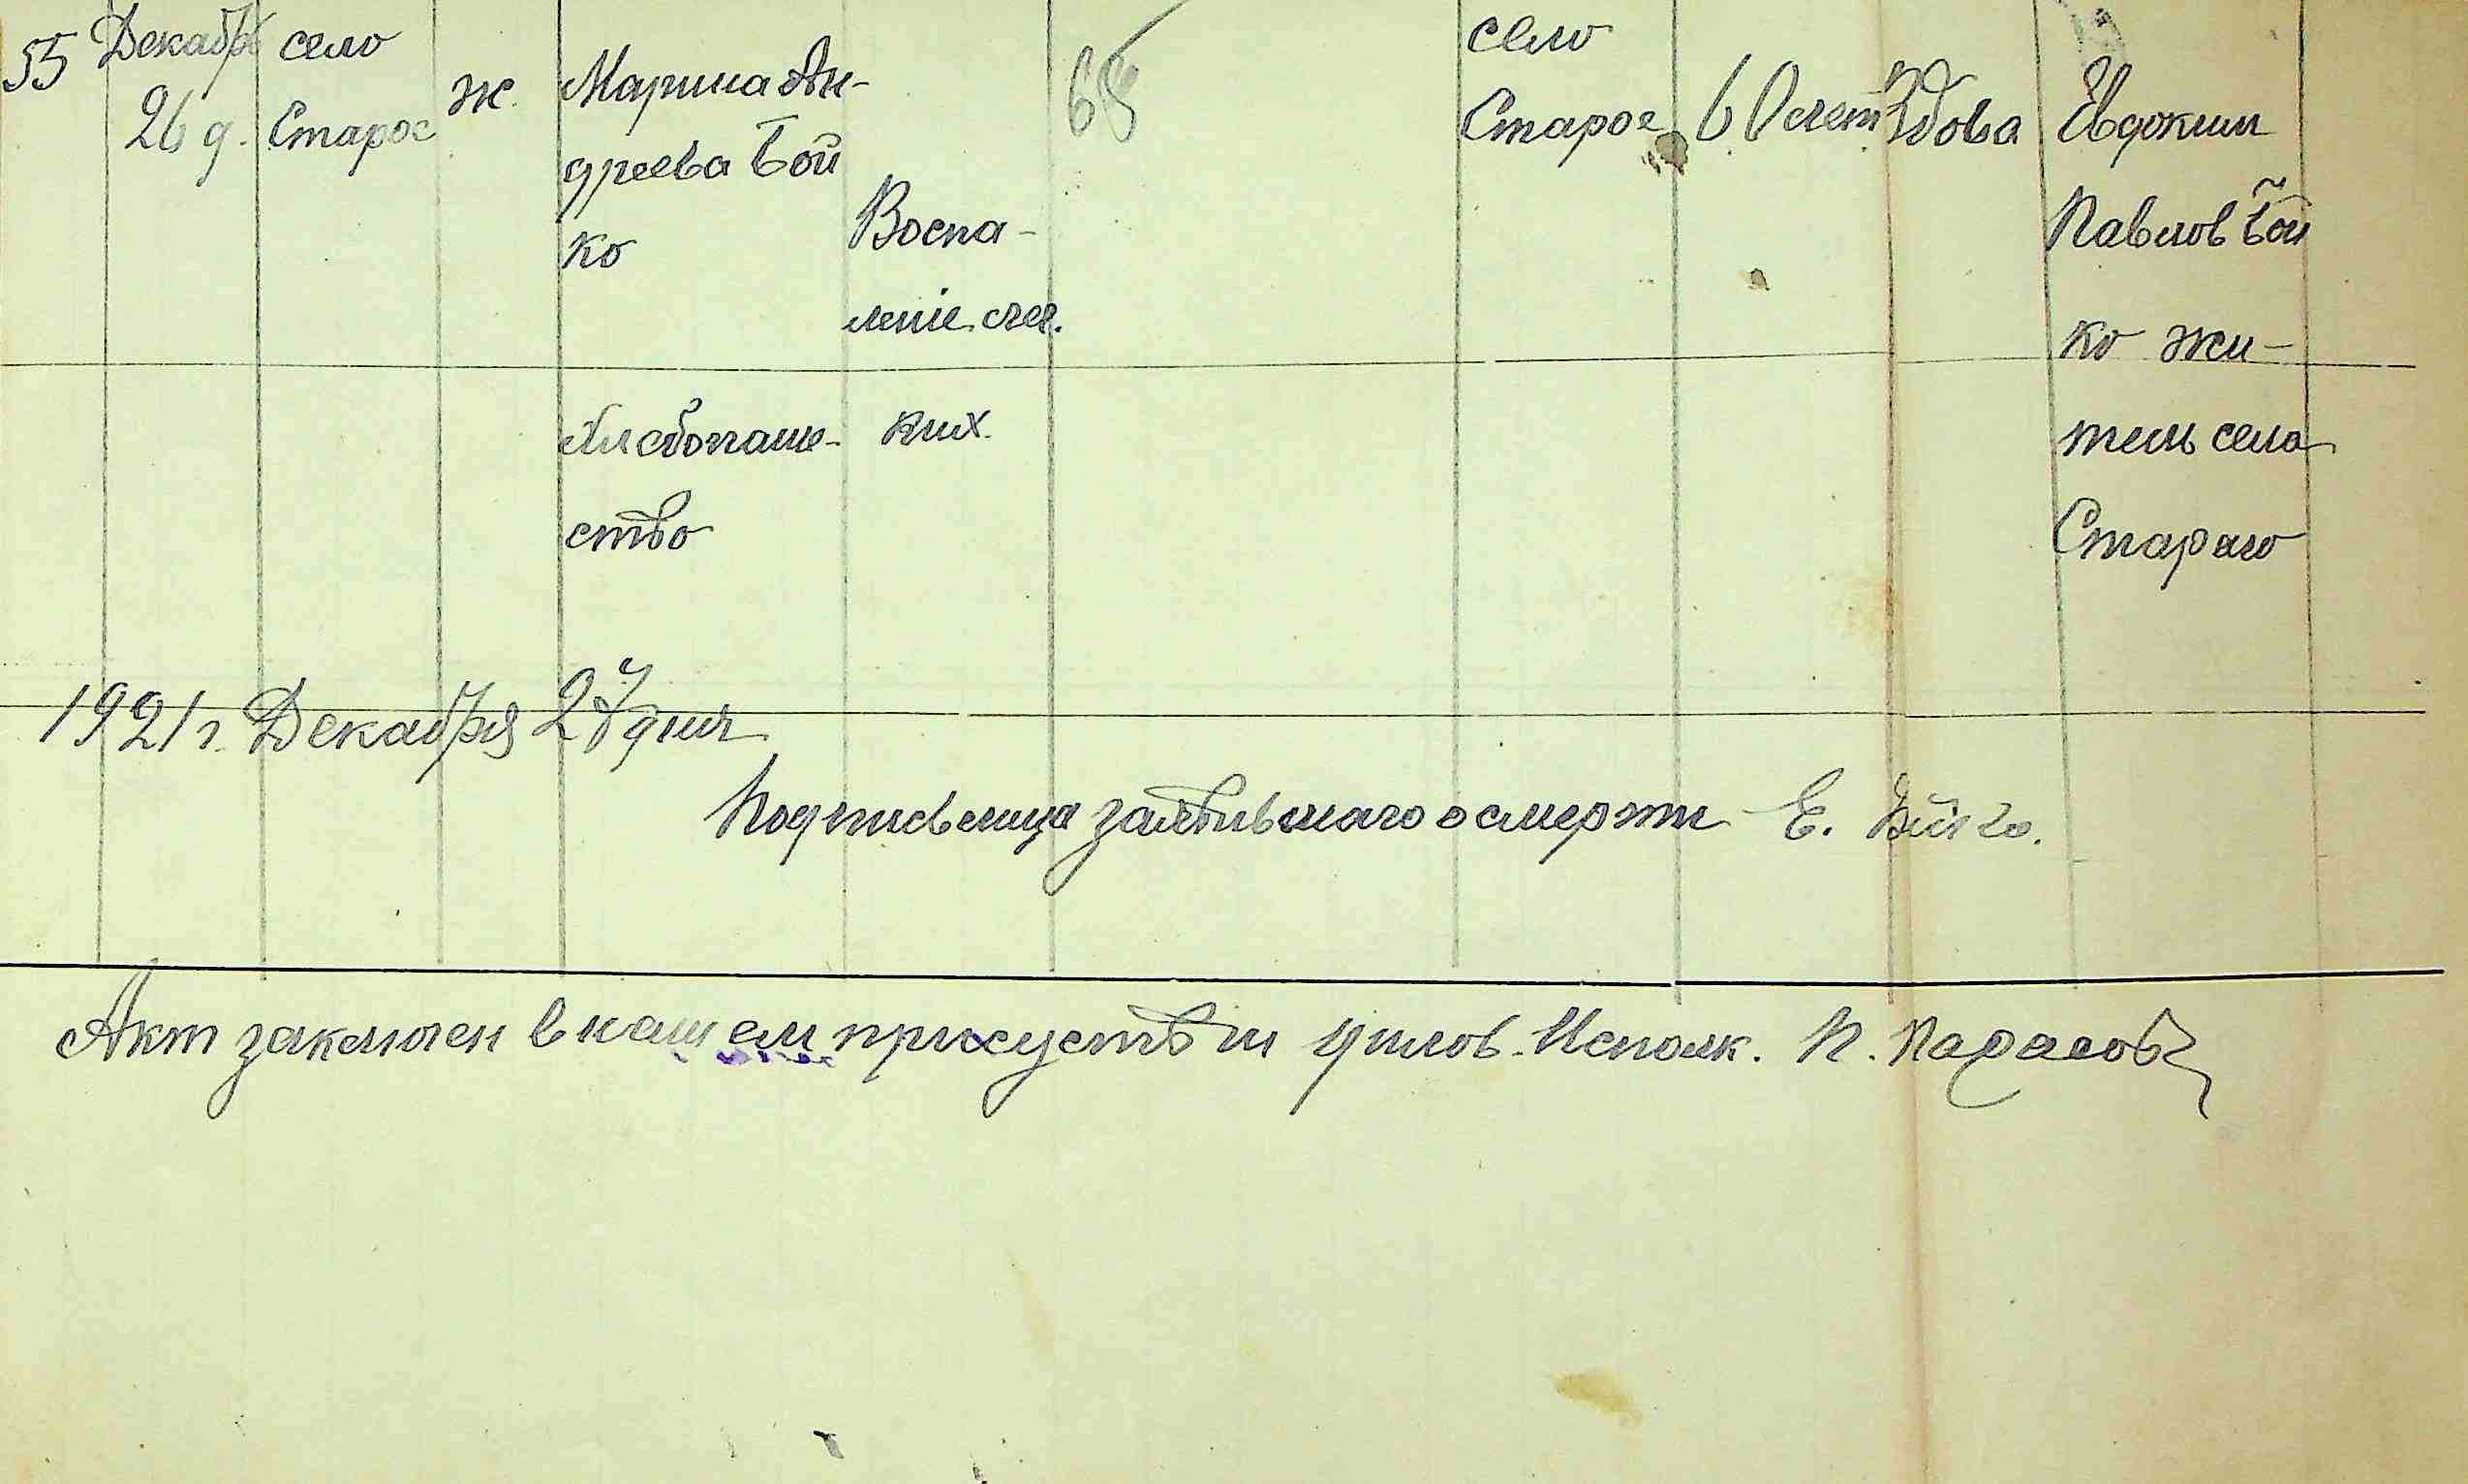 55
Декабря
26 д.
село
Старое
ж.
Марина Ан-
дреева Бой
ко
Хлебопаше-
ство
Воспа-
леніе лег.
ких
65
село
Старое
60 лет
Вдова
Евдоким
Павлов Бой
ко жи-
тель села
Стараго
1921 г. Декабря 27 дня
Подпись лица заявившаго о смерти Е. Бойко.
Акт заключен в нашем присуствіи Исполк.